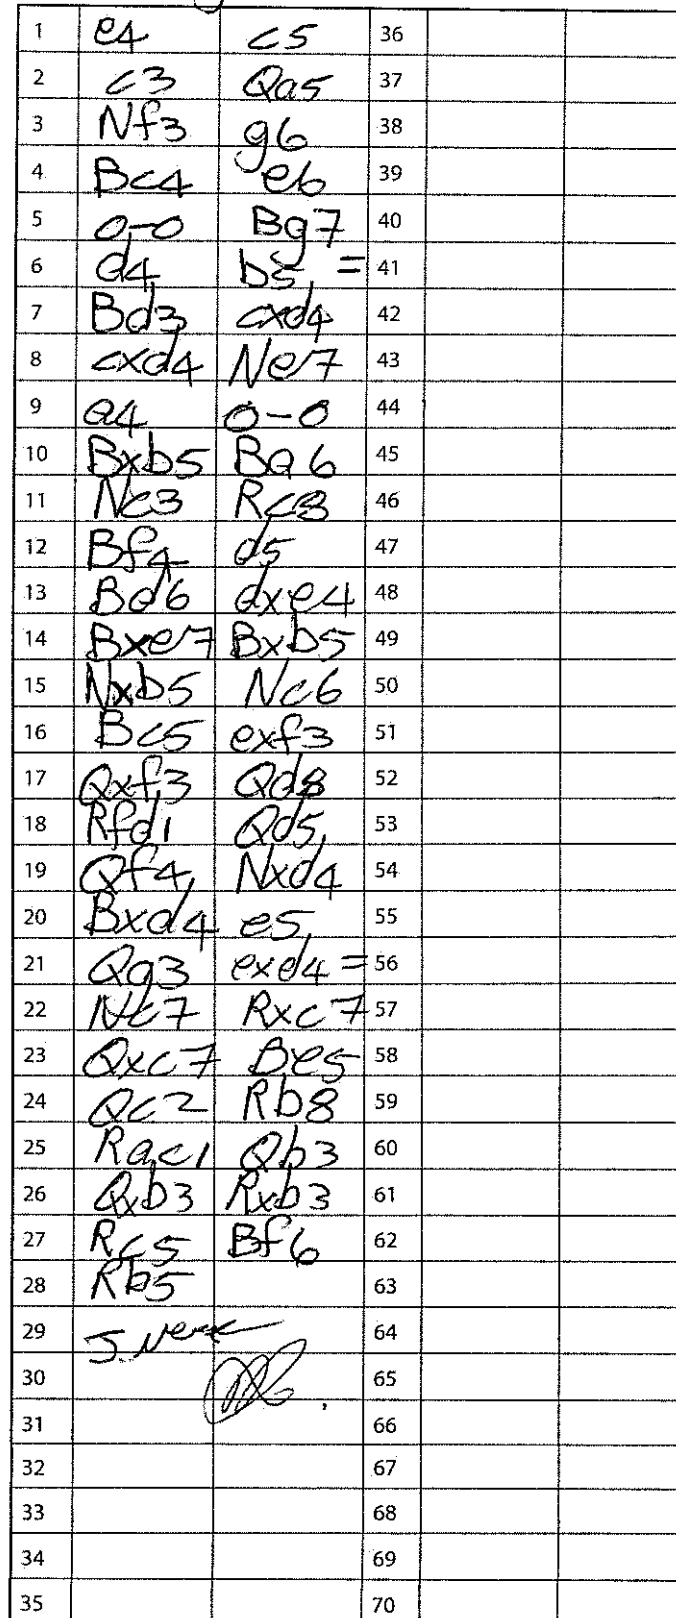 1 e4 c5 36
2 c3 Qa5 37
3 Nf3 g6 38
4 Bc4 e6 39
5 0-0 Bg7 40
6 d4 b5 = 41
7 Bd3 cxd4 42
8 cxd4 Ne7 43
9 a4 0-0 44
10 Bxb5 Ba6 45
11 Nc3 Rc8 46
12 Bf4 d5 47
13 Bd6 dxe4 48
14 Bxe7 Bxb5 49
15 Nxb5 Nc6 50
16 Bc5 exf3 51
17 Qxf3 Qd8 52
18 Rfd1 Qd5 53
19 Qf4 Nxd4 54
20 Bxd4 e5 55
21 Qg3 exd4 = 56
22 Nc7 Rxc7 57
23 Qxc7 Be5 58
24 Qc2 Rb8 59
25 Rac1 Qb3 60
26 Qxb3 Rxb3 61
27 Rc5 Bf6 62
28 Rb5 63
29 64
30 65
31 66
32 67
33 68
34 69
35 70